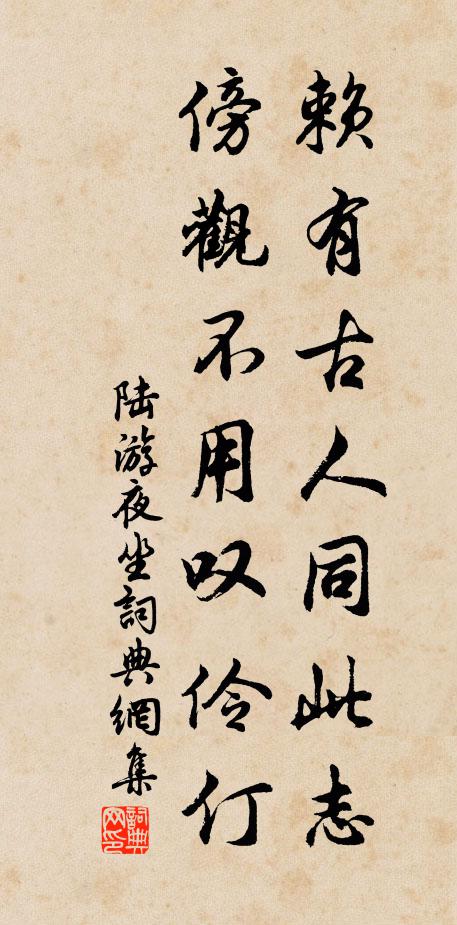 賴有古人同此志
傍觀不用叹伶仃
陆游夜坐詞典網集
詞典网印